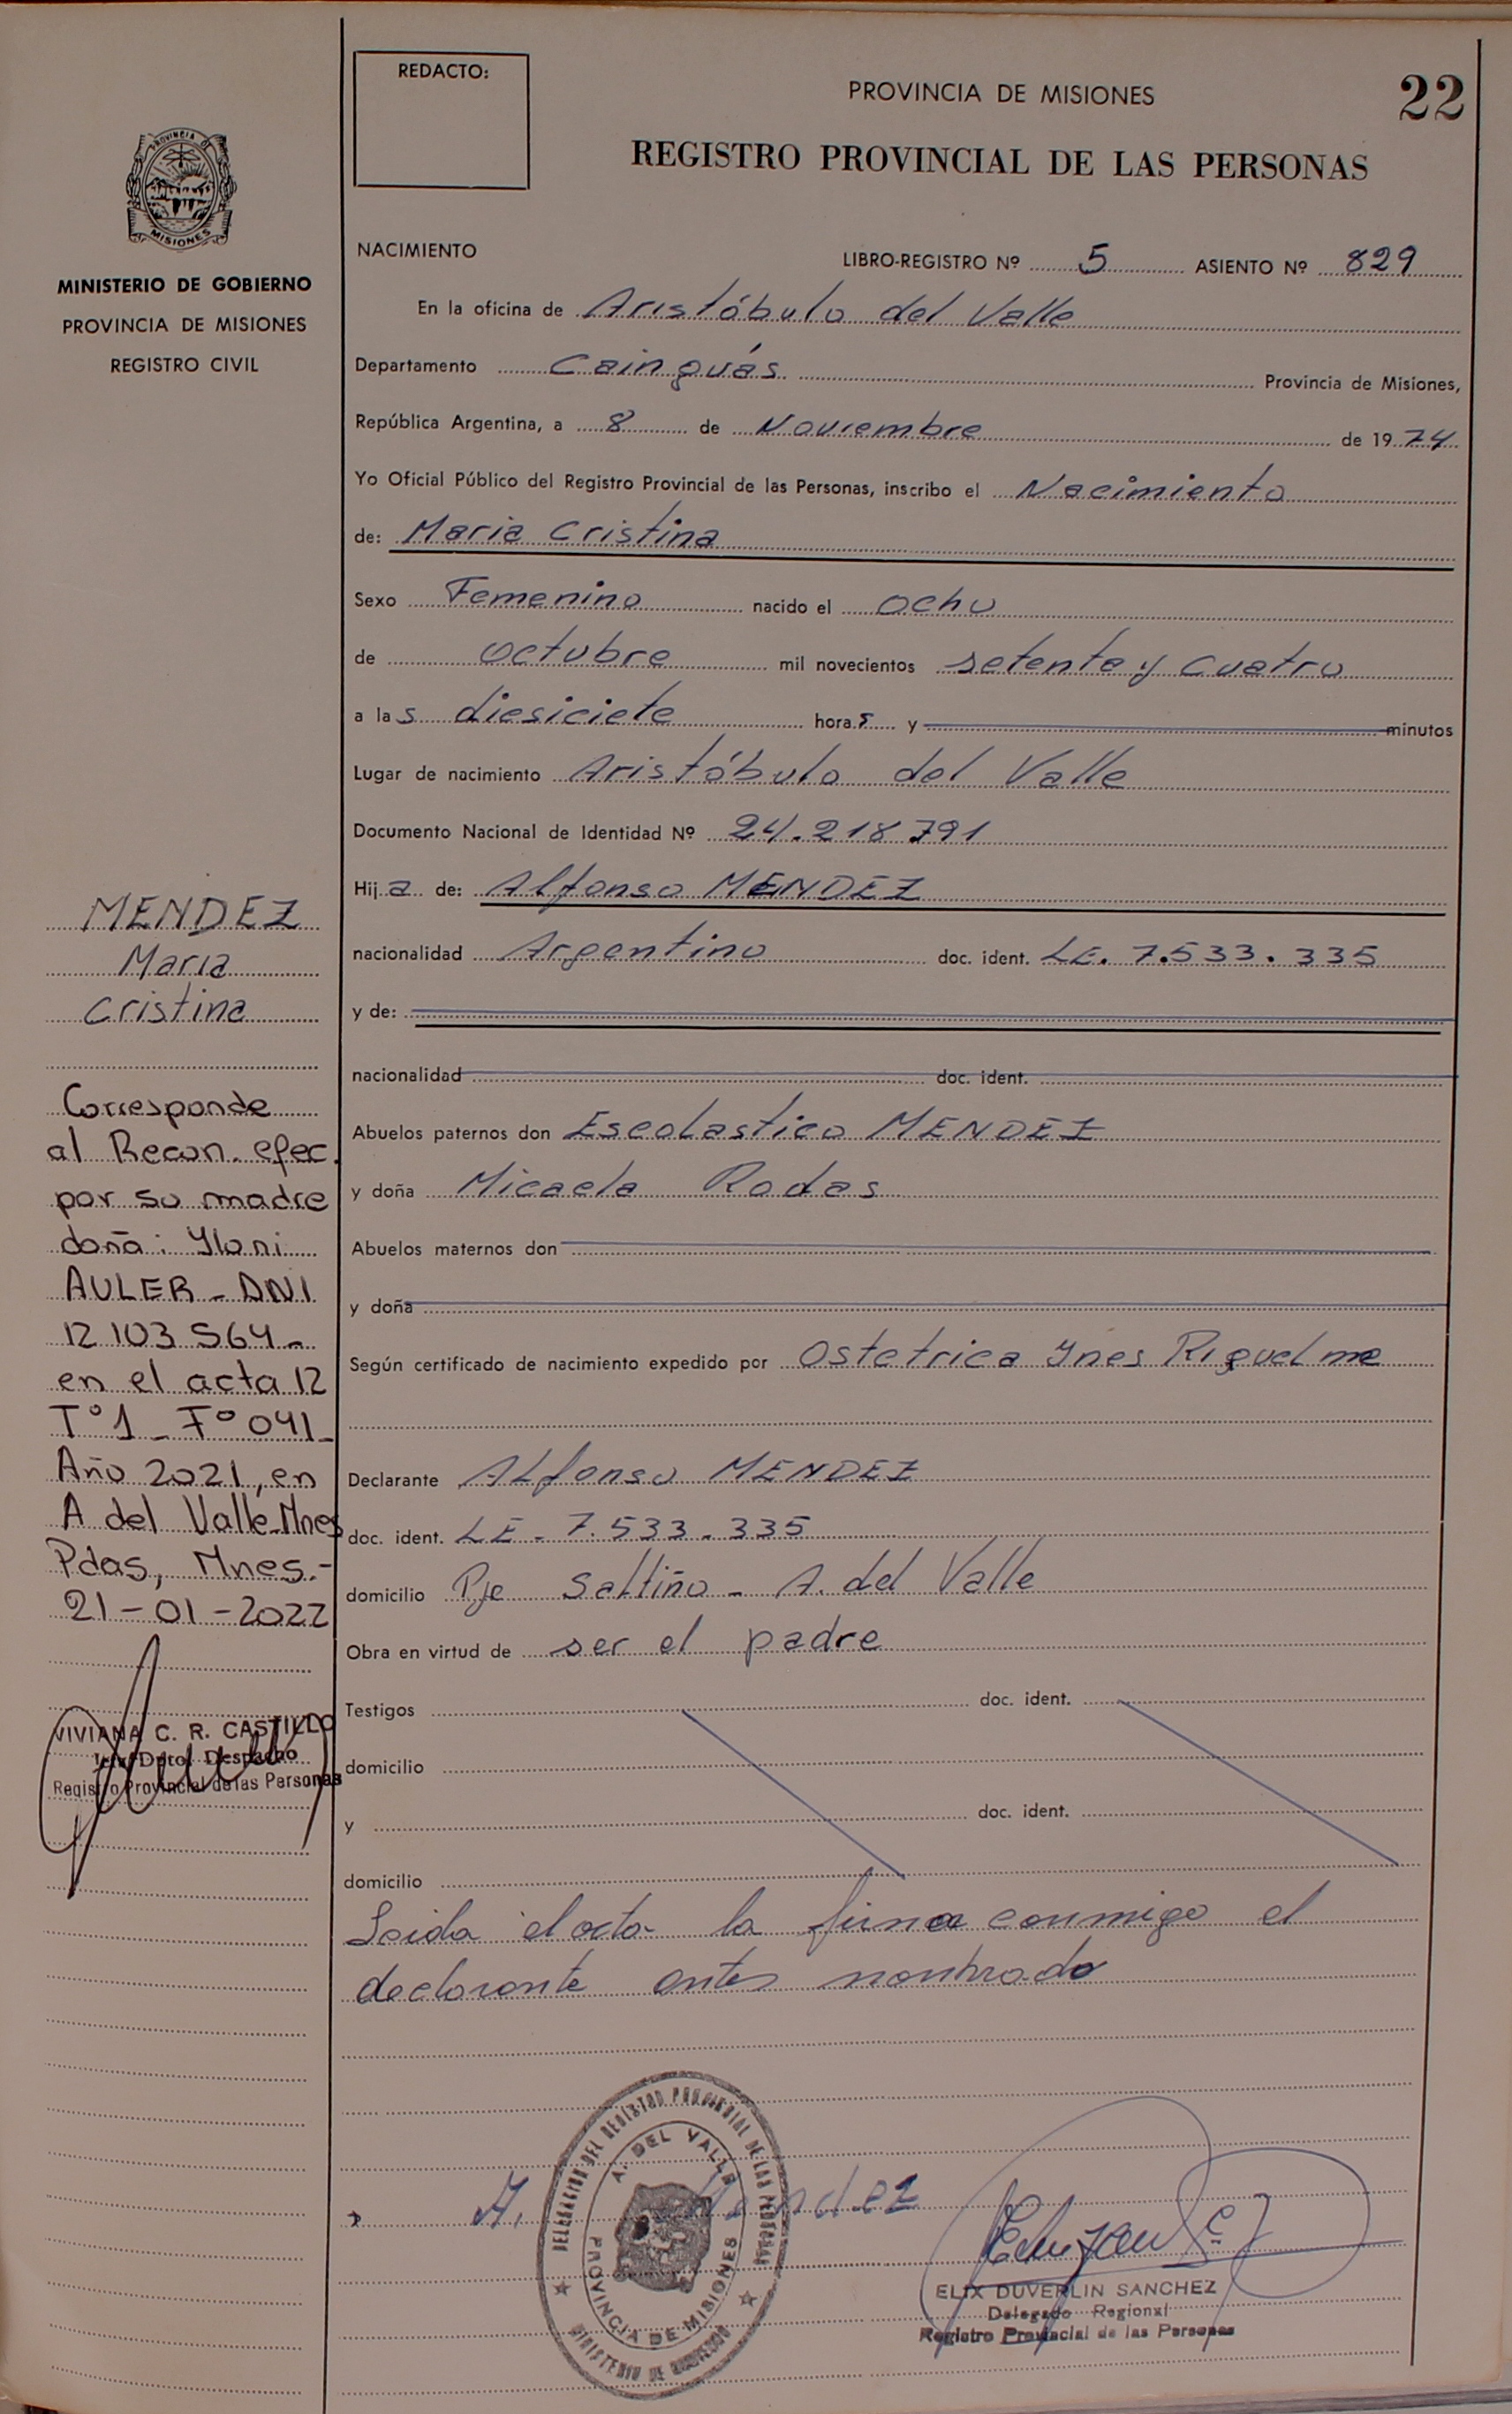 REDACTO:
PROVINCIA DE MISIONES
22
REGISTRO PROVINCIAL DE LAS PERSONAS
PROVINCIA DE
MISIONES
MINISTERIO DE GOBIERNO
PROVINCIA DE MISIONES
REGISTRO CIVIL
NACIMIENTO LIBRO-REGISTRO Nº 5 ASIENTO Nº 829
En la oficina de Aristóbulo del Valle
Departamento Cainguás Provincia de Misiones,
República Argentina, a 8 de Noviembre de 1974
Yo Oficial Público del Registro Provincial de las Personas, inscribo el Nacimiento
de: Maria Cristina
Sexo Femenino nacido el ocho
de octubre mil novecientos setenta y cuatro
a las diesiciete horas y minutos
Lugar de nacimiento Aristóbulo del Valle
Documento Nacional de Identidad Nº 24.218.791
Hija de: Alfonso MENDEZ
nacionalidad Argentino doc. ident. LE. 7.533.335
y de:
nacionalidad doc. ident.
Abuelos paternos don Escolastico MENDEZ
y doña Micaela Rodas
Abuelos maternos don
y doña
Según certificado de nacimiento expedido por Ostetrica Ynes Riquelme
Declarante ALfonso MENDEZ
doc. ident. LE - 7.533.335
domicilio Pje Saltiño - A. del Valle
Obra en virtud de ser el padre
Testigos doc. ident.
domicilio
y doc. ident.
domicilio
Leida el acta la firma conmigo el
declarante antes nombrado
MENDEZ
Maria
Cristina
Corresponde
al Recon. efec.
por su madre
doña: Yloni
AULER - DNI
12 103 564 -
en el acta 12
T° 1 - F° 041 -
Año 2021, en
A del Valle-Mnes
Pdas, Mnes.-
21-01-2022
VIVIANA C. R. CASTILLO
Jefa Dpto. Despacho
Registro Provincial de las Personas
A. Mendez
DELEGACION DEL REGISTRO PROVINCIAL DE LAS PERSONAS
A. DEL VALLE
PROVINCIA DE MISIONES
MINISTERIO DE GOBIERNO
ELIX DUVERLIN SANCHEZ
Delegado Regional
Registro Provincial de las Personas